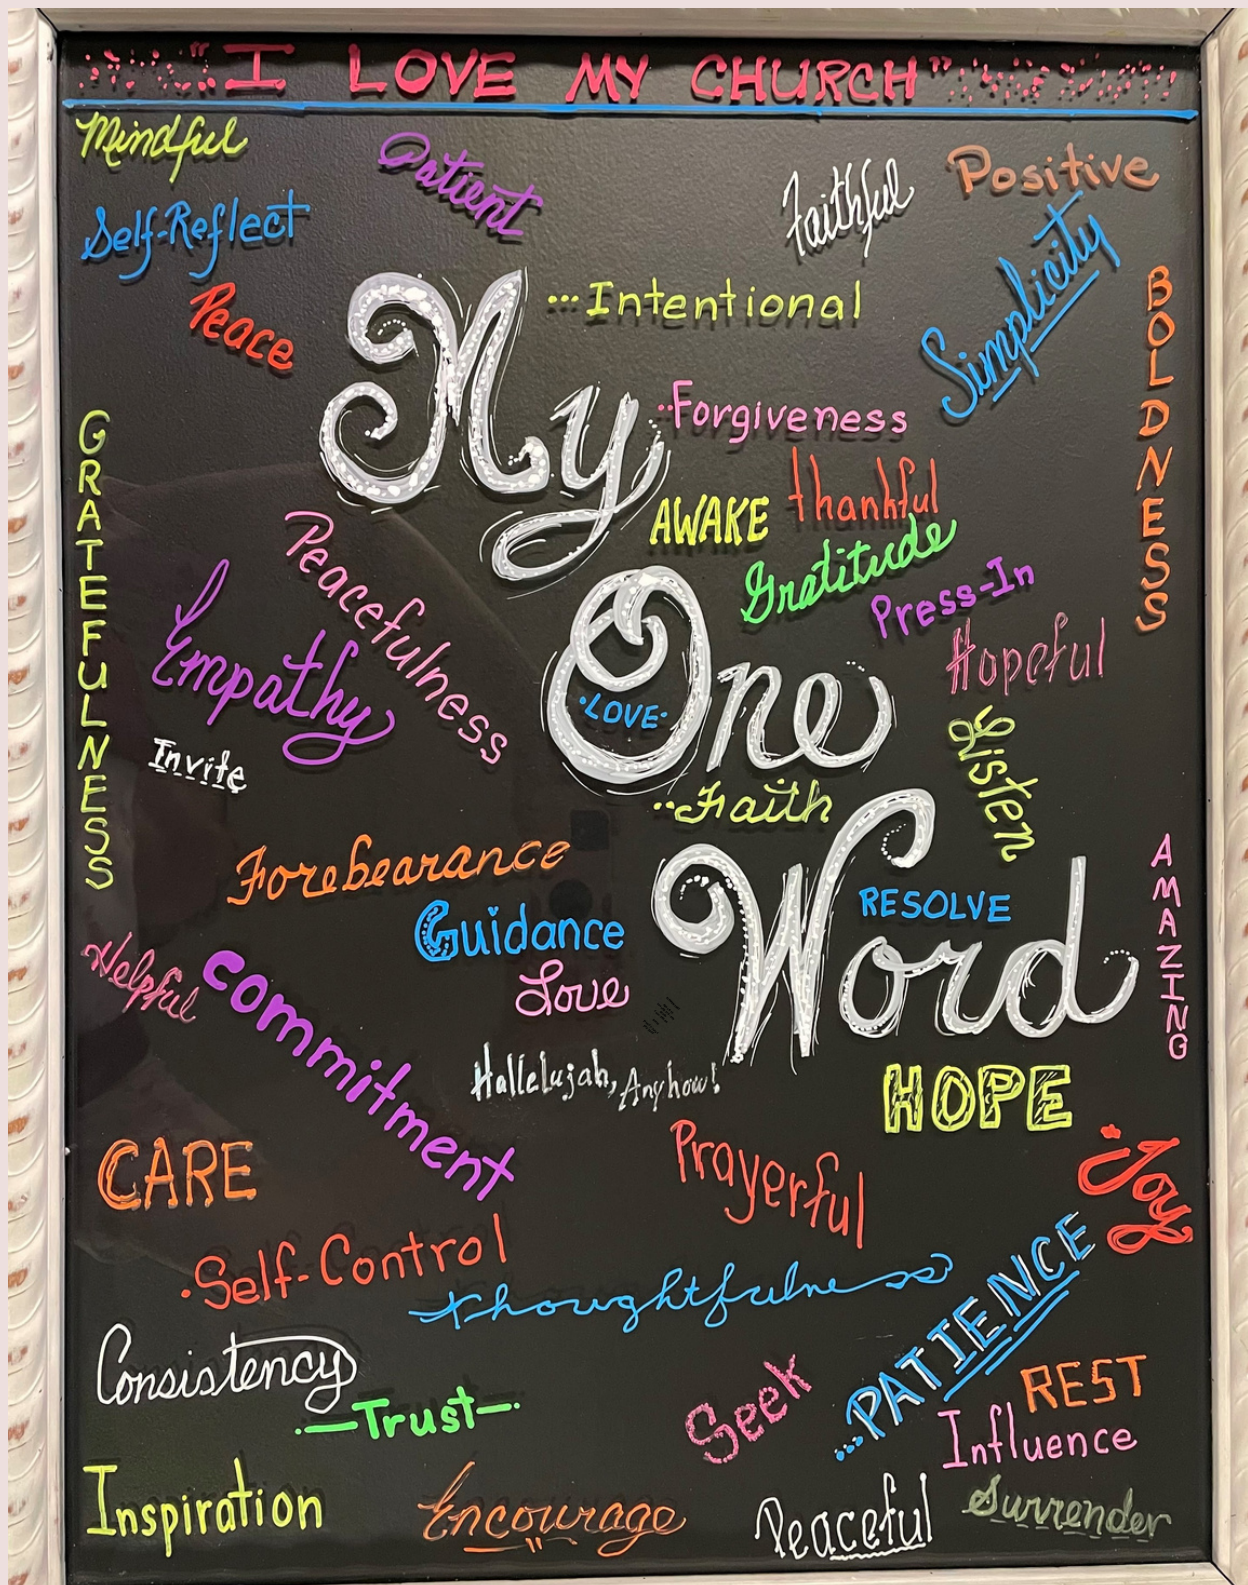 "I LOVE MY CHURCH"
Mindful
Patient
Faithful
Positive
Self-Reflect
Simplicity
Peace
...Intentional
BOLDNESS
My
..Forgiveness
GRATEFULNESS
AWAKE
thankful
Peacefulness
Gratitude
Press-In
Empathy
One
·LOVE·
Hopeful
Invite
Listen
..Faith
Forebearance
Word
RESOLVE
AMAZING
Guidance
Helpful
Love
commitment
Hallelujah, Anyhow!
HOPE
CARE
Prayerful
Joy
·Self-Control
Thoughtfulness
...PATIENCE
Consistency
-Trust-
Seek
REST
Influence
Inspiration
Encourage
Peaceful
Surrender